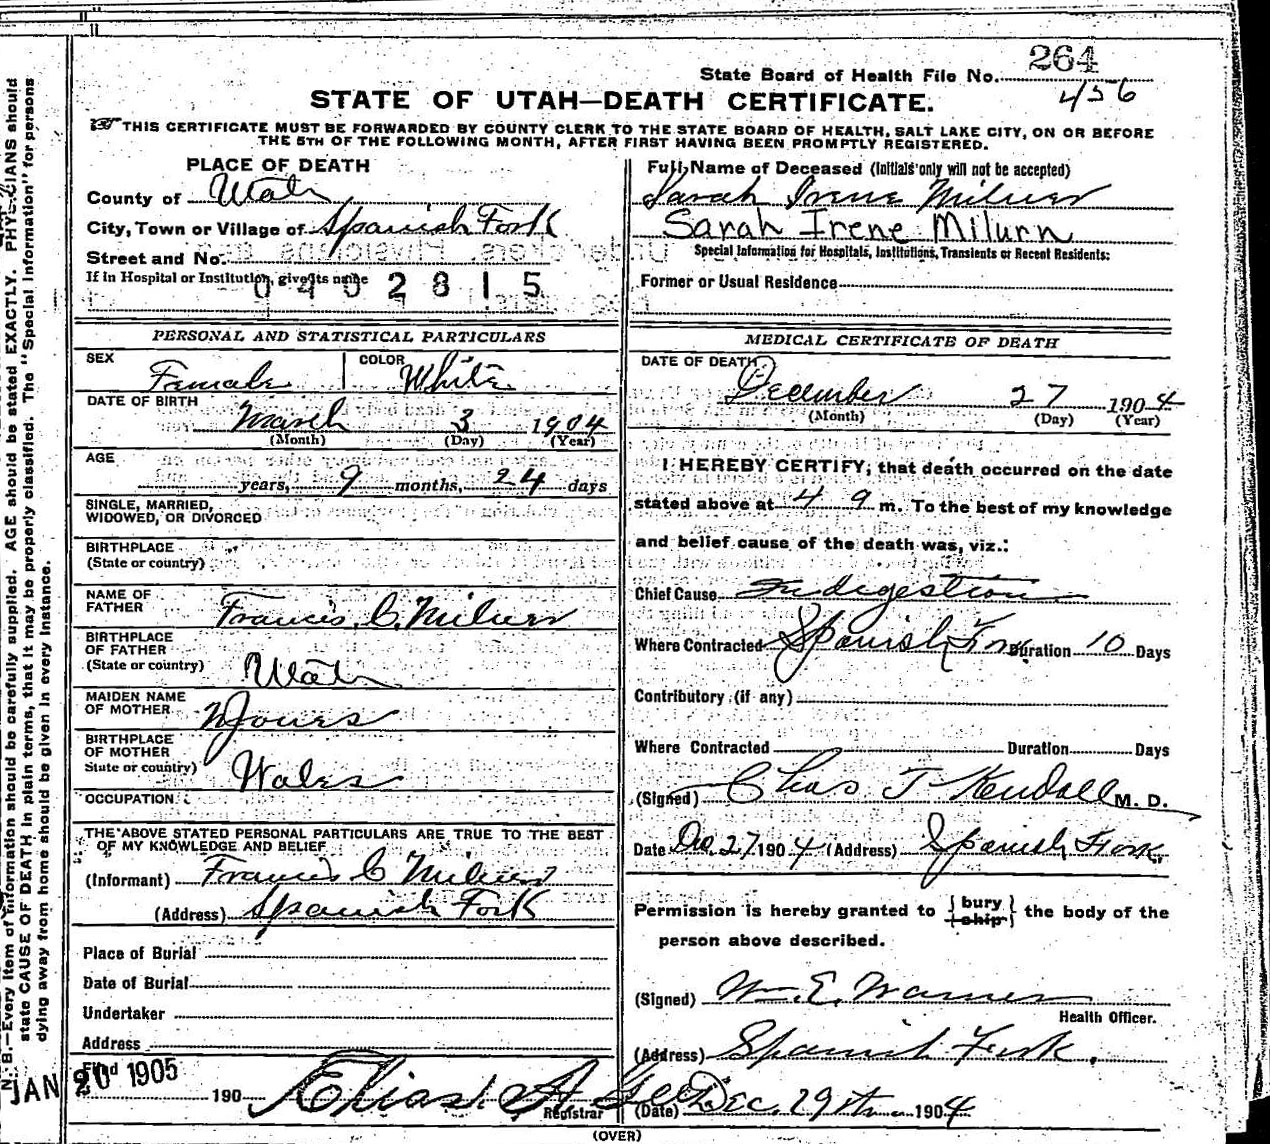 264
State Board of Health File No.
456
STATE OF UTAH—DEATH CERTIFICATE.
THIS CERTIFICATE MUST BE FORWARDED BY COUNTY CLERK TO THE STATE BOARD OF HEALTH, SALT LAKE CITY, ON OR BEFORE
THE 5TH OF THE FOLLOWING MONTH, AFTER FIRST HAVING BEEN PROMPTLY REGISTERED.
PLACE OF DEATH
County of Utah
City, Town or Village of Spanish Fork
Street and No.
If in Hospital or Institution, give its name
0402815
PERSONAL AND STATISTICAL PARTICULARS
SEX Female COLOR White
DATE OF BIRTH
March 3 1904
(Month) (Day) (Year)
AGE
years, 9 months, 24 days
SINGLE, MARRIED,
WIDOWED, OR DIVORCED
BIRTHPLACE
(State or country)
NAME OF
FATHER Francis C. Milner
BIRTHPLACE
OF FATHER
(State or country) Utah
MAIDEN NAME
OF MOTHER Jones
BIRTHPLACE
OF MOTHER
State or country) Wales
OCCUPATION
THE ABOVE STATED PERSONAL PARTICULARS ARE TRUE TO THE BEST
OF MY KNOWLEDGE AND BELIEF
(Informant) Francis C Milner
(Address) Spanish Fork
Place of Burial
Date of Burial
Undertaker
Address
Filed
JAN 20 1905
190 Elias A Gee
Registrar
Full Name of Deceased (Initials only will not be accepted)
Sarah Irene Milner
Sarah Irene Milurn
Special Information for Hospitals, Institutions, Transients or Recent Residents:
Former or Usual Residence
MEDICAL CERTIFICATE OF DEATH
DATE OF DEATH
December 27 1904
(Month) (Day) (Year)
I HEREBY CERTIFY, that death occurred on the date
stated above at 4 9 m. To the best of my knowledge
and belief cause of the death was, viz.:
Chief Cause Indigestion
Where Contracted Spanish Fork Duration 10 Days
Contributory (if any)
Where Contracted Duration Days
(Signed) Chas T Kendall M. D.
Date Dec. 27 1904 (Address) Spanish Fork
Permission is hereby granted to {bury
ship} the body of the
person above described.
(Signed) Wm. E. Warner
Health Officer.
(Address) Spanish Fork.
(Date) Dec. 29th 1904
(OVER)
N. B.—Every item of information should be carefully supplied. AGE should be stated EXACTLY. PHYSICIANS should
state CAUSE OF DEATH in plain terms, that it may be properly classified. The "Special Information" for persons
dying away from home should be given in every instance.